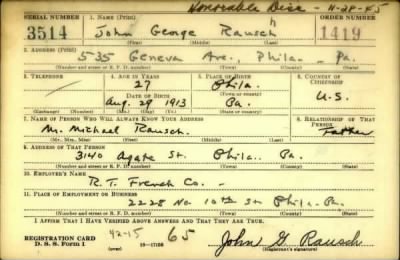 Honorable Disc - 11-28-45
SERIAL NUMBER 1. NAME (Print) ORDER NUMBER
3514 John George Rausch 1419
(First) (Middle) (Last)
2. ADDRESS (Print)
535 Geneva Ave., Phila. Pa.
(Number and street or R. F. D. number) (Town) (County) (State)
3. TELEPHONE 4. AGE IN YEARS 5. PLACE OF BIRTH 6. COUNTRY OF CITIZENSHIP
27 Phila.
DATE OF BIRTH (Town or county)
Aug. 29 1913 Pa. U.S.
(Exchange) (Number) (Mo.) (Day) (Yr.) (State or country)
7. NAME OF PERSON WHO WILL ALWAYS KNOW YOUR ADDRESS 8. RELATIONSHIP OF THAT PERSON
Mr. Michael Rausch Father
(Mr., Mrs., Miss) (First) (Middle) (Last)
9. ADDRESS OF THAT PERSON
3140 Agate St. Phila. Pa.
(Number and street or R. F. D. number) (Town) (County) (State)
10. EMPLOYER'S NAME
R. T. French Co. -
11. PLACE OF EMPLOYMENT OR BUSINESS
2228 No 10th St Phila. Pa.
(Number and street or R. F. D. number) (Town) (County) (State)
I AFFIRM THAT I HAVE VERIFIED ABOVE ANSWERS AND THAT THEY ARE TRUE.
REGISTRATION CARD
D. S. S. Form 1 42-15 65 John G Rausch
(Registrant's signature)